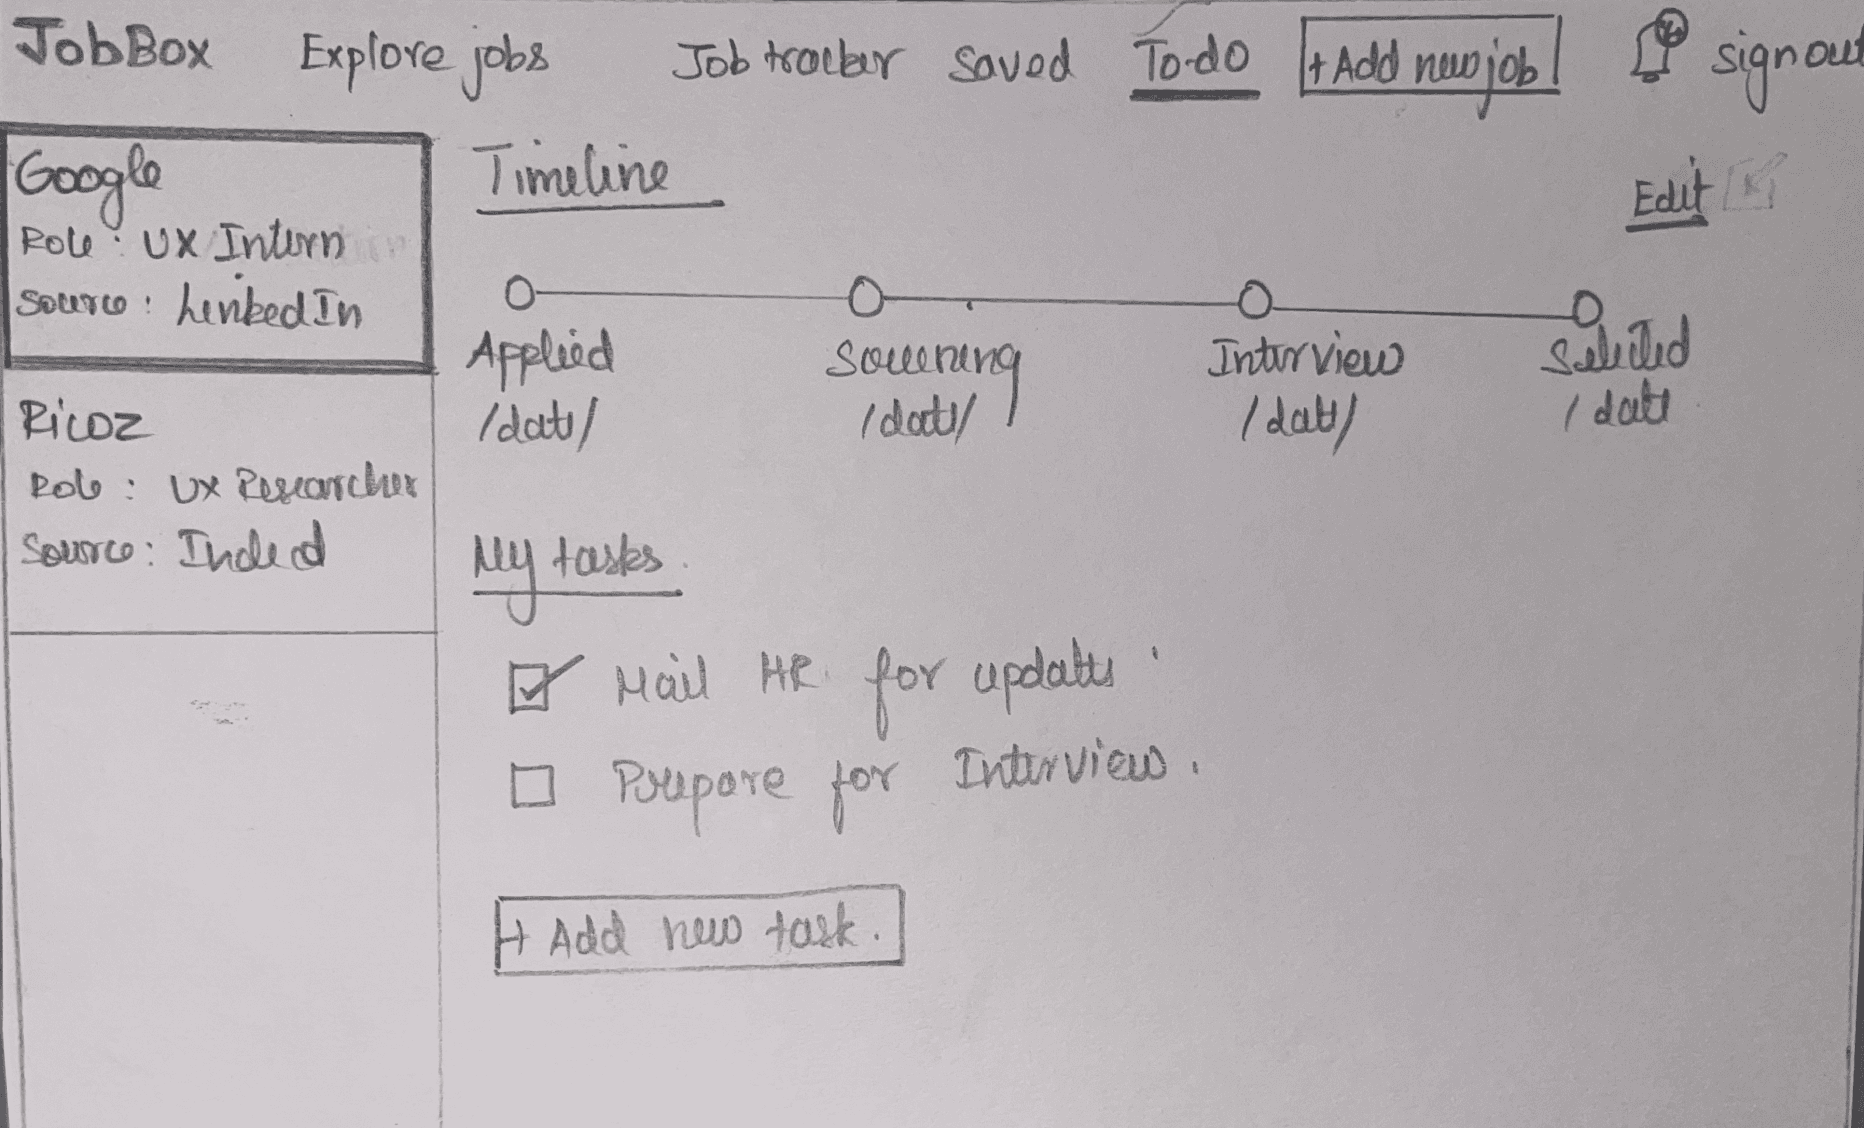 JobBox Explore jobs Job tracker Saved To-do + Add new job sign out
Google
Role : UX Intern
Source : LinkedIn
Ricoz
Role : UX Researcher
Source : Indeed
Timeline
Edit
Applied Screening Interview Selected
/date/ /date/ /date/ /date
My tasks.
Mail HR for updates
Prepare for Interview.
+ Add new task.